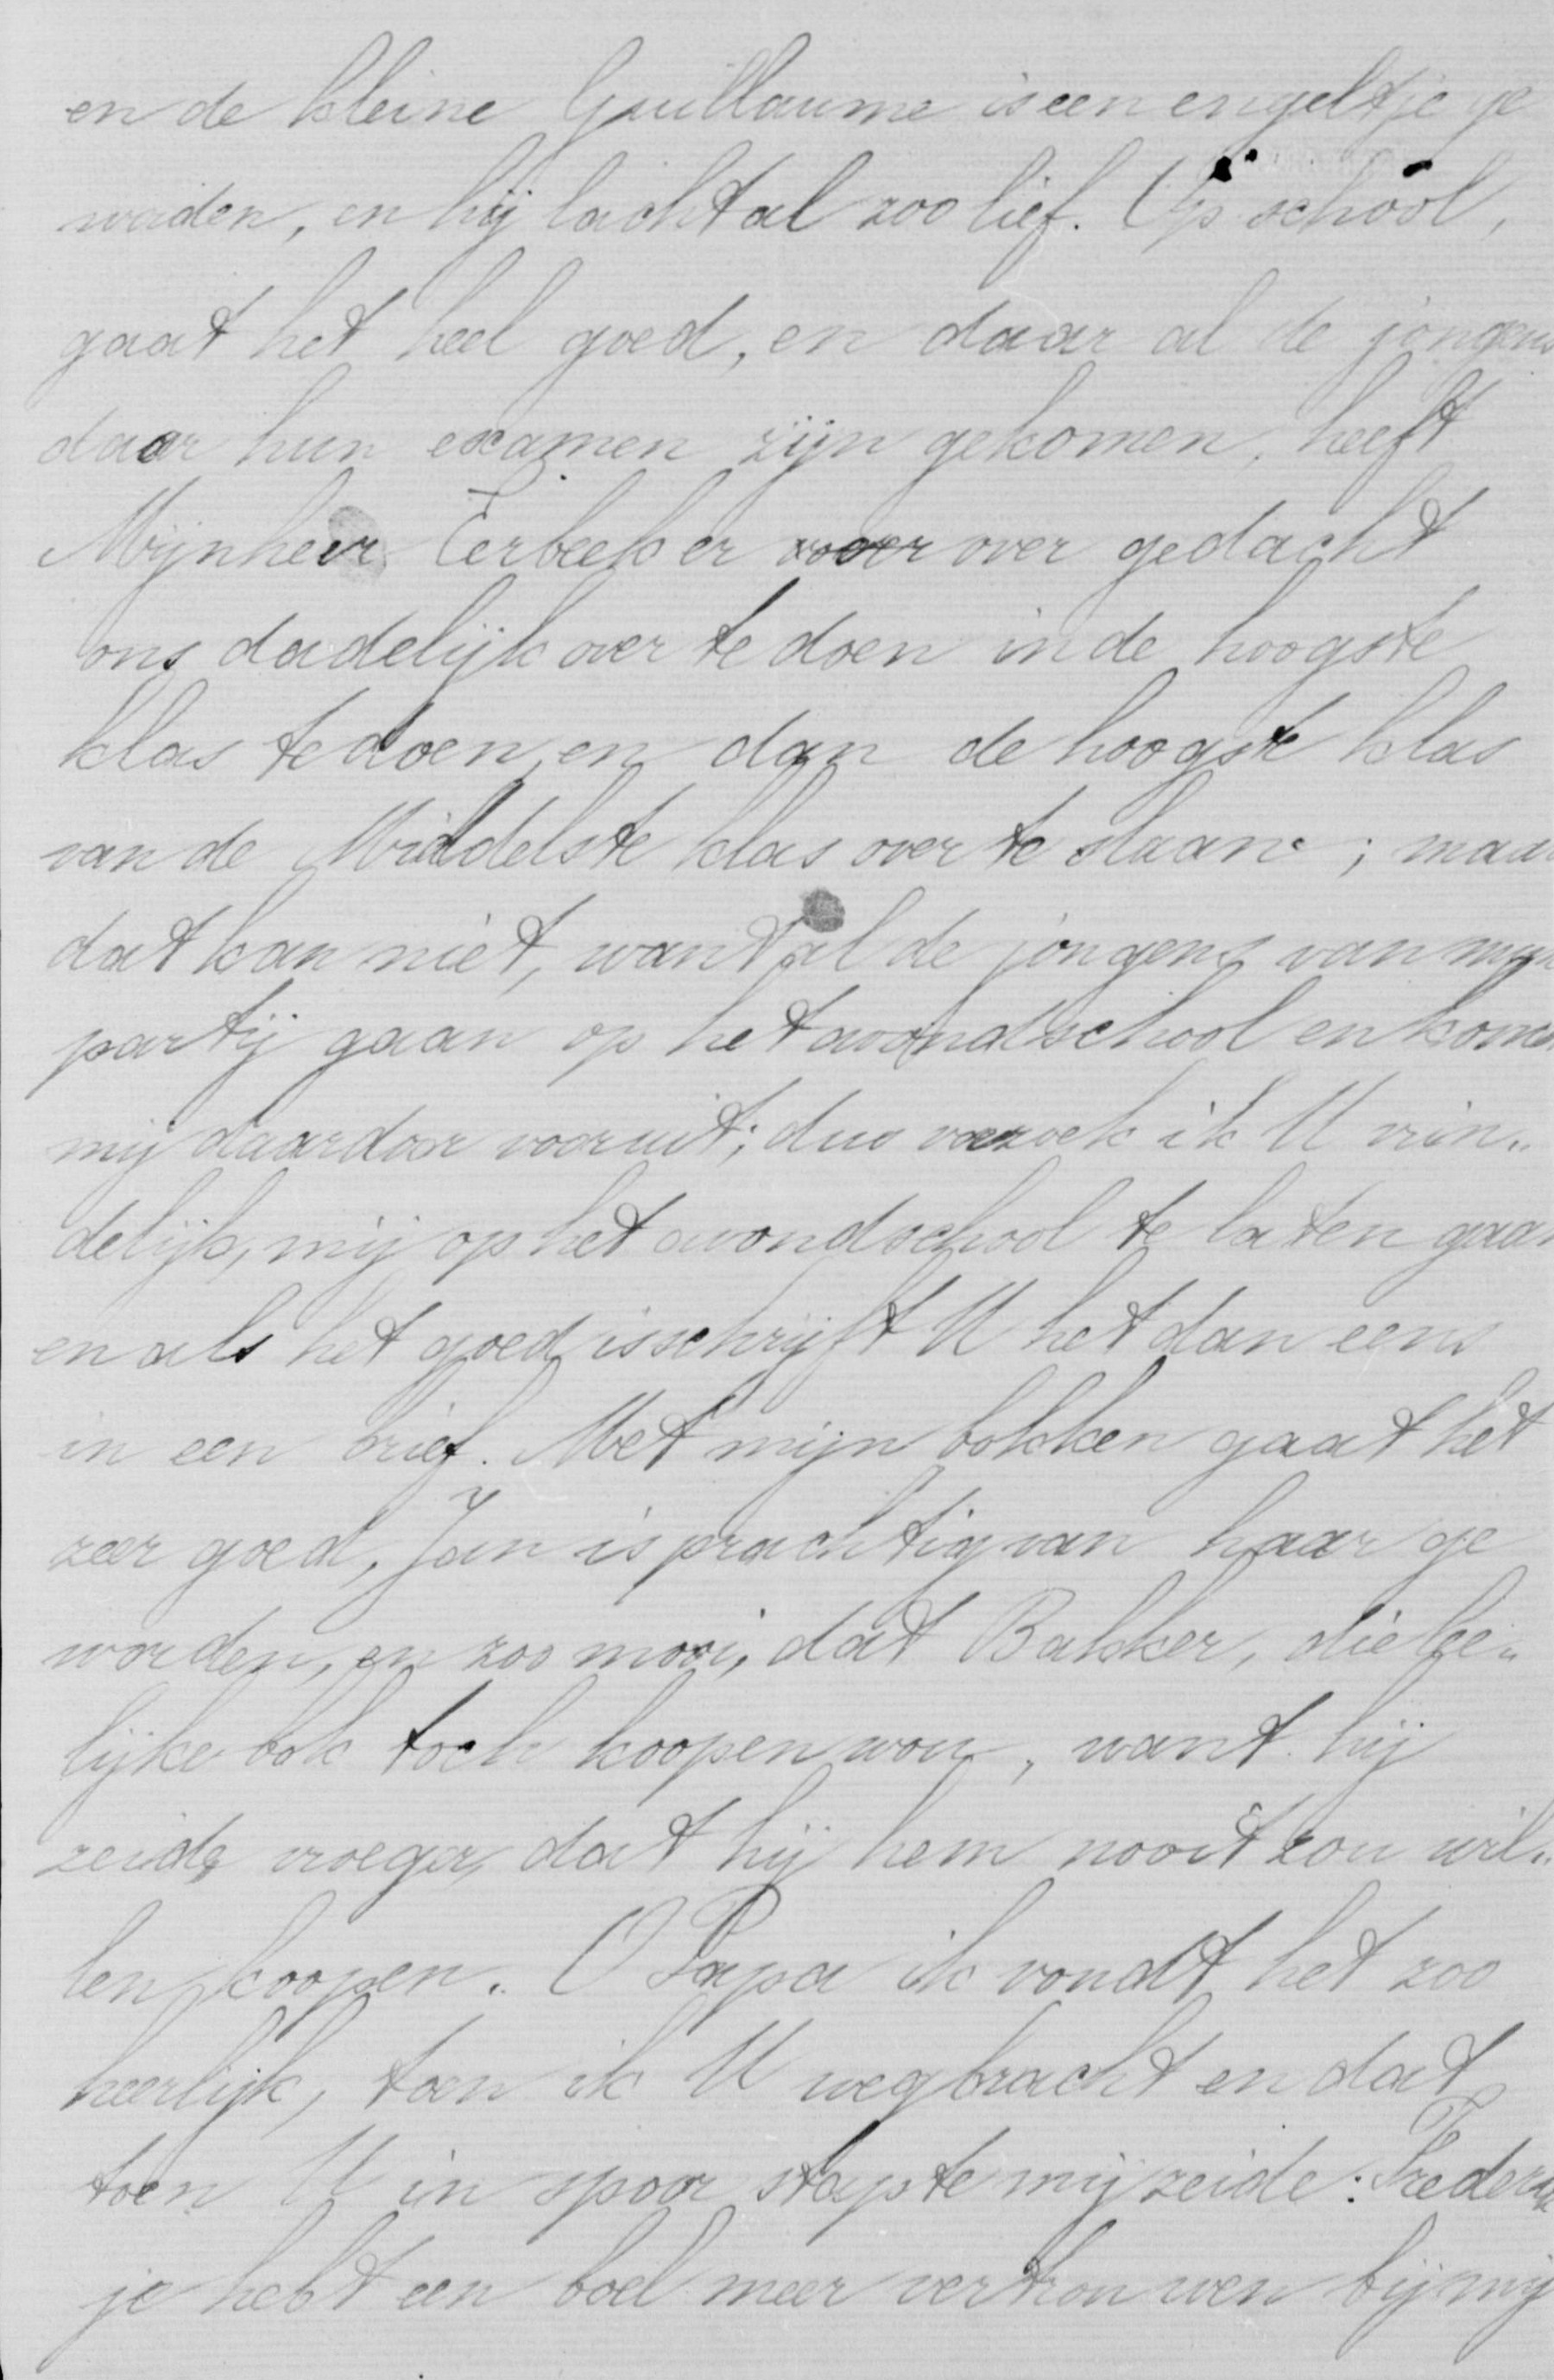 en de kleine Guillaume is een engeltje ge
worden, en hij lacht al zoo lief. Op school,
gaat het heel goed, en daar al de jongens
daor hun examen zijn gekomen, heeft
Mijnheer Eerbeek er over gedacht
ons dadelijk over te doen in de hoogste
klas te doen, en dan de hoogste klas
van de Middelste klas over te slaan ; maar
dat kan niet, want al de jongens van mijn
partij gaan op het avondschool en komen
mij daardoor vooruit; dus verzoek ik U vrin„
delijk, mij op het avondschool te laten gaan
en als het goed is schrijft U het dan eens
in een brief. Met mijn bokken gaat het
zeer goed, Jan is prachtig van haar ge
worden, en zoo mooi, dat Bakker, die lee„
lijke bok toch koopen wou, want hij
zeide vroeger, dat hij hem nooit zou wil„
len koopen. O Papa ik vondt het zoo
heerlijk, toen ik U wegbracht en dat
toen U in spoor stapte mij zeide: Frederik
je hebt een boel meer vertrouwen bij mij